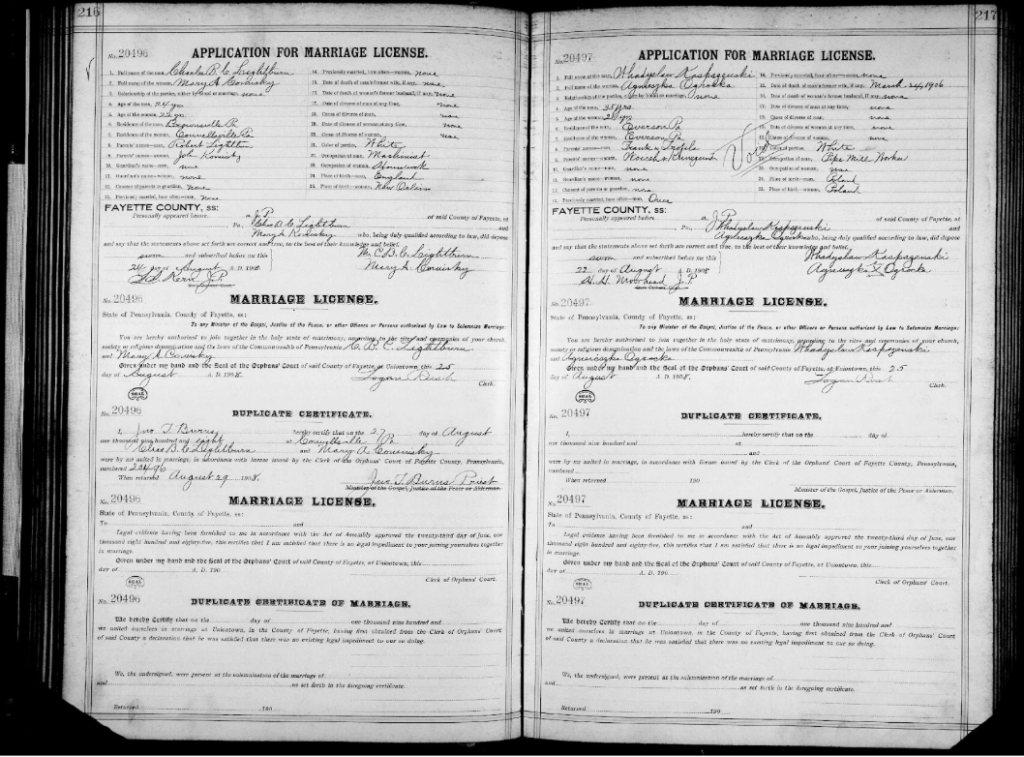 216
No. 20496
APPLICATION FOR MARRIAGE LICENSE.
1. Full name of the man, Charles B. C. Lightburn
2. Full name of the woman, Mary A. Cominsky
3. Relationship of the parties, either by blood or marriage, none
4. Age of the man, 24 yrs
5. Age of the woman, 22 yrs
6. Residence of the man, Brownsville Pa
7. Residence of the woman, Connellsville Pa
8. Parents' names—man, Robert Lightbn
9. Parents' names—woman, John
10. Guardian's name—man, none
11. Guardian's name—woman, none
12. Consent of parents or guardian, None
13. Previously married, how often—man, None
14. Previously married, how often—woman, none
15. Date of death of man's former wife, if any, none
16. Date of death of woman's former husband, if any, none
17. Date of divorce of man at any time, none
18. Cause of divorce of man, none
19. Date of divorce of woman at any time, none
20. Cause of divorce of woman, none
21. Color of parties, White
22. Occupation of man, Machinist
23. Occupation of woman, Housework
24. Place of birth—man, England
25. Place of birth—woman, New
FAYETTE COUNTY, ss:
Personally appeared before, a J.P. of said County of Fayette, at
Pa., Chas B C Lightburn and
Mary A who, being duly qualified according to law, did depose
and say that the statements above set forth are correct and true, to the best of their knowledge and belief.
sworn and subscribed before this
day of August A. D. 1908
J.P.
C B C Lightburn
Mary A
No. 20496
MARRIAGE LICENSE.
State of Pennsylvania, County of Fayette, ss:
To any Minister of the Gospel, Justice of the Peace, or other Officers or Persons authorized by Law to Solemnize Marriage:
You are hereby authorized to join together in the holy state of matrimony, according to the rites and ceremonies of your church,
society or religious denomination and the laws of the Commonwealth of Pennsylvania C. B. C. Lightburn
and Mary A.
Given under my hand and the Seal of the Orphans' Court of said County of Fayette, at Uniontown, this 25
day of August A. D. 1908. Logan Rush Clerk.
SEAL
No. 20496
DUPLICATE CERTIFICATE.
I, Jno. T. Burns hereby certify that on the 27 day of August
one thousand nine hundred and eight at Connellsville Pa
Chas B. C Lightburn and Mary A
were by me united in marriage, in accordance with license issued by the Clerk of the Orphans' Court of Fayette County, Pennsylvania,
numbered 20496
When returned August 29 1908. Jno. T. Burns Priest
Minister of the Gospel, Justice of the Peace or Alderman.
No. 20496
MARRIAGE LICENSE.
State of Pennsylvania, County of Fayette, ss:
To and
Legal evidence having been furnished to me in accordance with the Act of Assembly approved the twenty-third day of June, one
thousand eight hundred and eighty-five, this certifies that I am satisfied that there is no legal impediment to your joining yourselves together
in marriage.
Given under my hand and the Seal of the Orphans' Court of said County of Fayette, at Uniontown, this
day of A. D. 190
SEAL
Clerk of Orphans' Court.
No. 20496
DUPLICATE CERTIFICATE OF MARRIAGE.
We hereby Certify that on the day of one thousand nine hundred and
we united ourselves in marriage at Uniontown, in the County of Fayette, having first obtained from the Clerk of Orphans' Court
of said County a declaration that he was satisfied that there was no existing legal impediment to our so doing.
We, the undersigned, were present at the solemnization of the marriage of
and as set forth in the foregoing certificate.
Returned 190
217
No. 20497
APPLICATION FOR MARRIAGE LICENSE.
1. Full name of the man, Whadyslaw Kasprzynski
2. Full name of the woman, Agnieszka Ogroska
3. Relationship of the parties, either by blood or marriage, none
4. Age of the man, 38 yrs
5. Age of the woman, 28 yrs
6. Residence of the man, Everson Pa
7. Residence of the woman, Everson Pa
8. Parents' names—man, Frank &
9. Parents' names—woman,
10. Guardian's name—man, none
11. Guardian's name—woman, none
12. Consent of parents or guardian, none
13. Previously married, how often—man, Once
14. Previously married, how often—woman, none
15. Date of death of man's former wife, if any, March 24, 1906
16. Date of death of woman's former husband, if any, none
17. Date of divorce of man at any time, none
18. Cause of divorce of man, none
19. Date of divorce of woman at any time, none
20. Cause of divorce of woman, none
21. Color of parties, White
22. Occupation of man, Pipe Mill Worker
23. Occupation of woman, none
24. Place of birth—man, Poland
25. Place of birth—woman, Poland
Void
FAYETTE COUNTY, ss:
Personally appeared before, a J.P. of said County of Fayette, at
Pa., Whadyslaw Kasprzynski and
Agnieszka who, being duly qualified according to law, did depose
and say that the statements above set forth are correct and true, to the best of their knowledge and belief.
sworn and subscribed before this
22 day of August A. D. 1908
H. H. Moorhead J.P.
Whadyslaw Kasprzynski
Agnieszka X Ogroska
No. 20497
MARRIAGE LICENSE.
State of Pennsylvania, County of Fayette, ss:
To any Minister of the Gospel, Justice of the Peace, or other Officers or Persons authorized by Law to Solemnize Marriage:
You are hereby authorized to join together in the holy state of matrimony, according to the rites and ceremonies of your church,
society or religious denomination and the laws of the Commonwealth of Pennsylvania Whadyslaw Kasprzynski
and Agnieszka Ogroska
Given under my hand and the Seal of the Orphans' Court of said County of Fayette, at Uniontown, this 25
day of August A. D. 1908. Logan Rush
Clerk.
SEAL
No. 20497
DUPLICATE CERTIFICATE.
I, hereby certify that on the day of
one thousand nine hundred and at
and
were by me united in marriage, in accordance with license issued by the Clerk of the Orphans' Court of Fayette County, Pennsylvania,
numbered
When returned 190
Minister of the Gospel, Justice of the Peace or Alderman.
No. 20497
MARRIAGE LICENSE.
State of Pennsylvania, County of Fayette, ss:
To and
Legal evidence having been furnished to me in accordance with the Act of Assembly approved the twenty-third day of June, one
thousand eight hundred and eighty-five, this certifies that I am satisfied that there is no legal impediment to your joining yourselves together
in marriage.
Given under my hand and the Seal of the Orphans' Court of said County of Fayette, at Uniontown, this
day of A. D. 190
SEAL
Clerk of Orphans' Court.
No. 20497
DUPLICATE CERTIFICATE OF MARRIAGE.
We hereby Certify that on the day of one thousand nine hundred and
we united ourselves in marriage at Uniontown, in the County of Fayette, having first obtained from the Clerk of Orphans' Court
of said County a declaration that he was satisfied that there was no existing legal impediment to our so doing.
We, the undersigned, were present at the solemnization of the marriage of
and as set forth in the foregoing certificate.
Returned 190